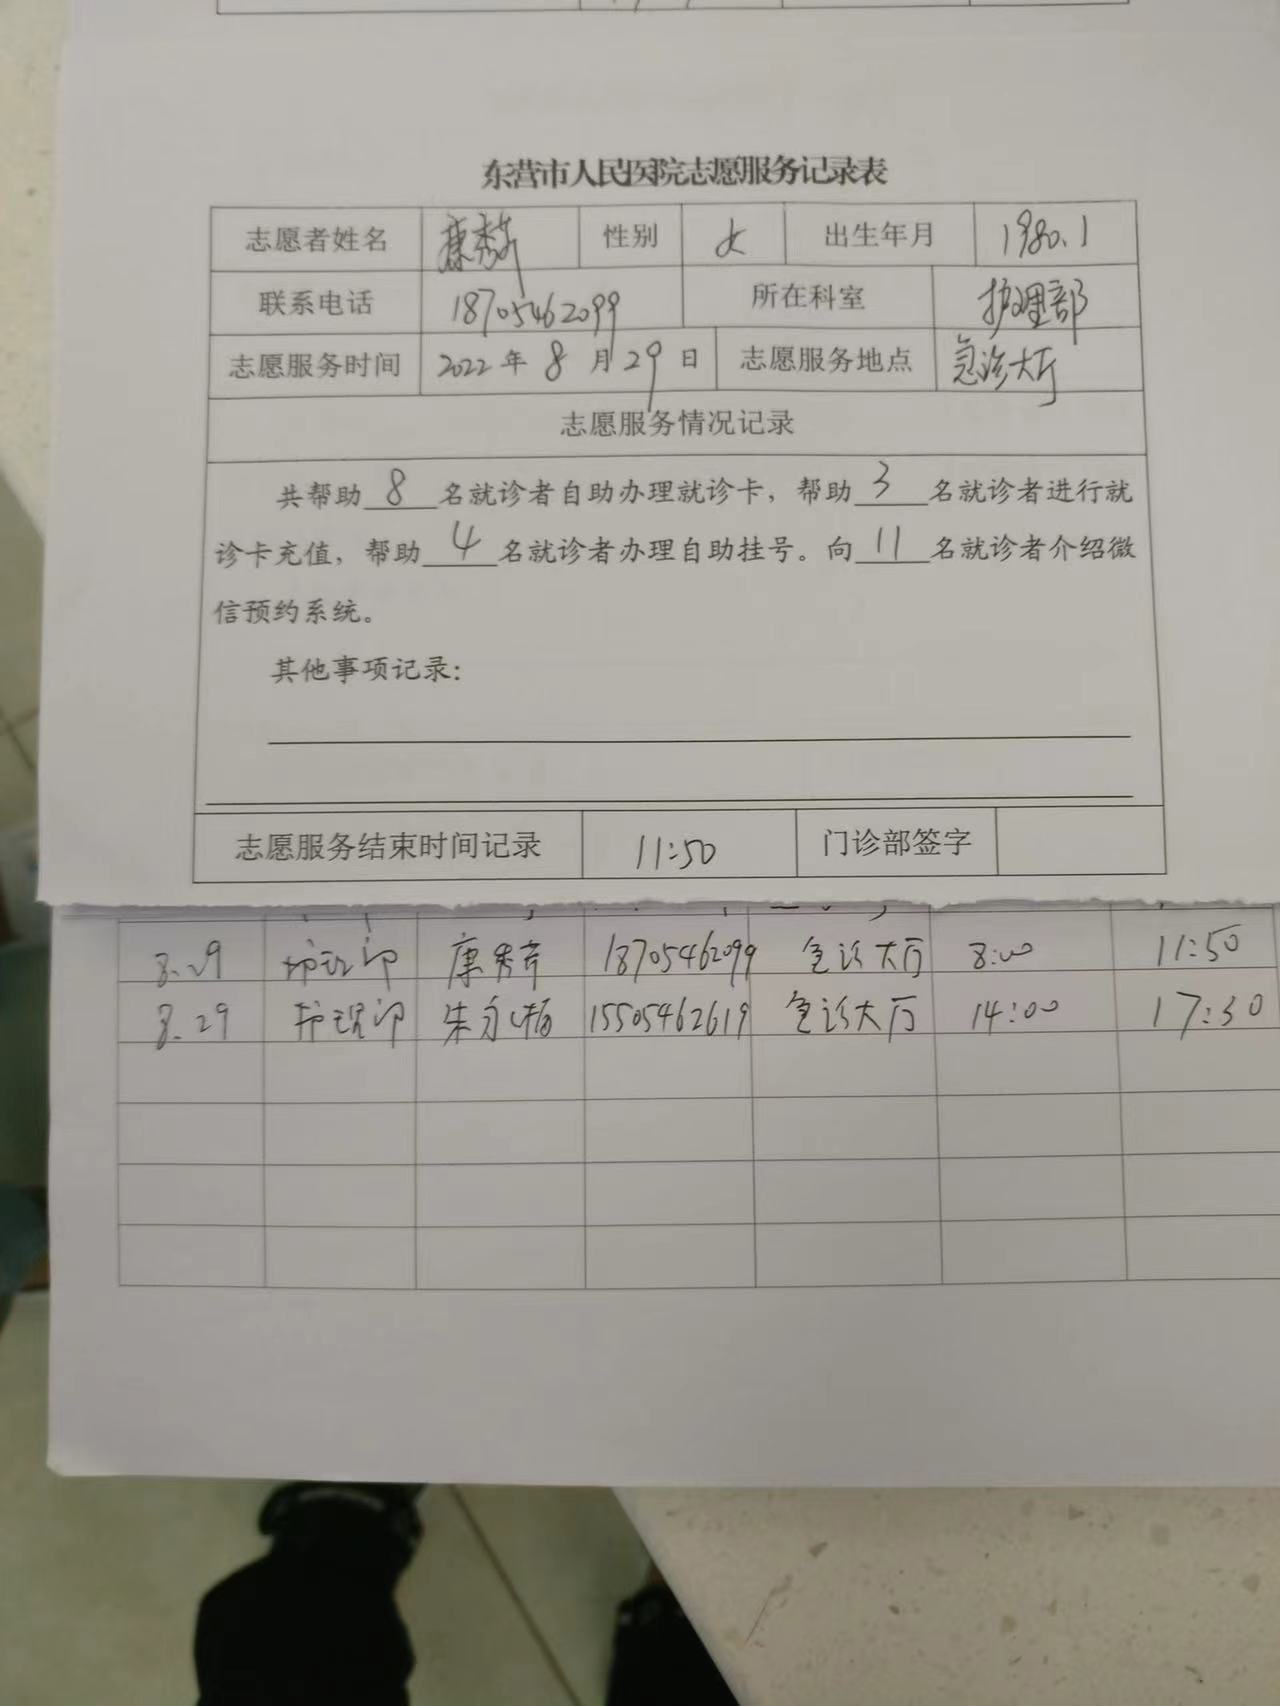 东营市人民医院志愿服务记录表
志愿者姓名 康秀芹 性别 女 出生年月 1980.1
联系电话 18705462099 所在科室 护理部
志愿服务时间 2022年8月29日 志愿服务地点 急诊大厅
志愿服务情况记录
共帮助8名就诊者自助办理就诊卡，帮助3名就诊者进行就
诊卡充值，帮助4名就诊者办理自助挂号。向11名就诊者介绍微
信预约系统。
其他事项记录：
志愿服务结束时间记录 11:50 门诊部签字
8.29 护理部 康秀芹 18705462099 急诊大厅 8:00 11:50
8.29 护理部 朱永梅 15505462619 急诊大厅 14:00 17:30